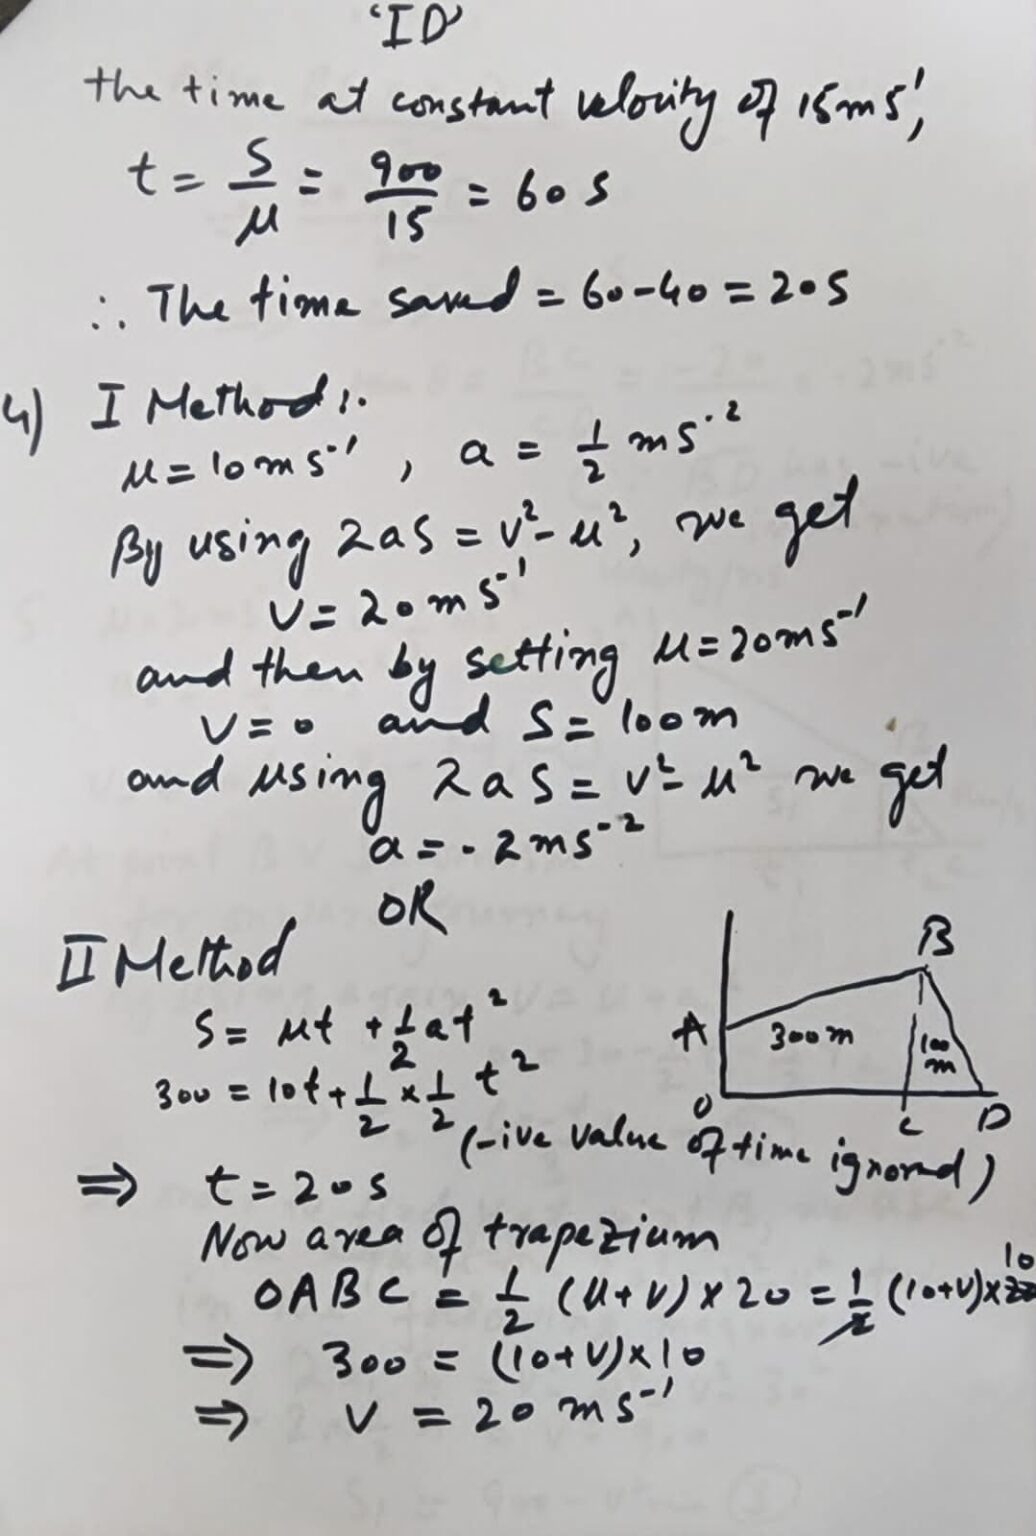 'ID'
the time at constant velocity of 15ms⁻¹,
t = S/u = 900/15 = 60s
∴ The time saved = 60-40 = 20s
4) I Method:.
u = 10ms⁻¹, a = 1/2 ms⁻²
By using 2aS = v²-u², we get
V = 20ms⁻¹
and then by setting u = 20ms⁻¹
V = 0 and S = 100m
and using 2aS = v²-u² we get
a = -2ms⁻²
OR
II Method
S = ut + 1/2 at²
300 = 10t + 1/2 × 1/2 t²
B
A
300m
100 m
O
C
D
(-ive value of time ignored)
⇒ t = 20s
Now area of trapezium
OABC = 1/2 (u+v) × 20 = 1/2 (10+v) × 20 10
⇒ 300 = (10+v) × 10
⇒ V = 20 ms⁻¹